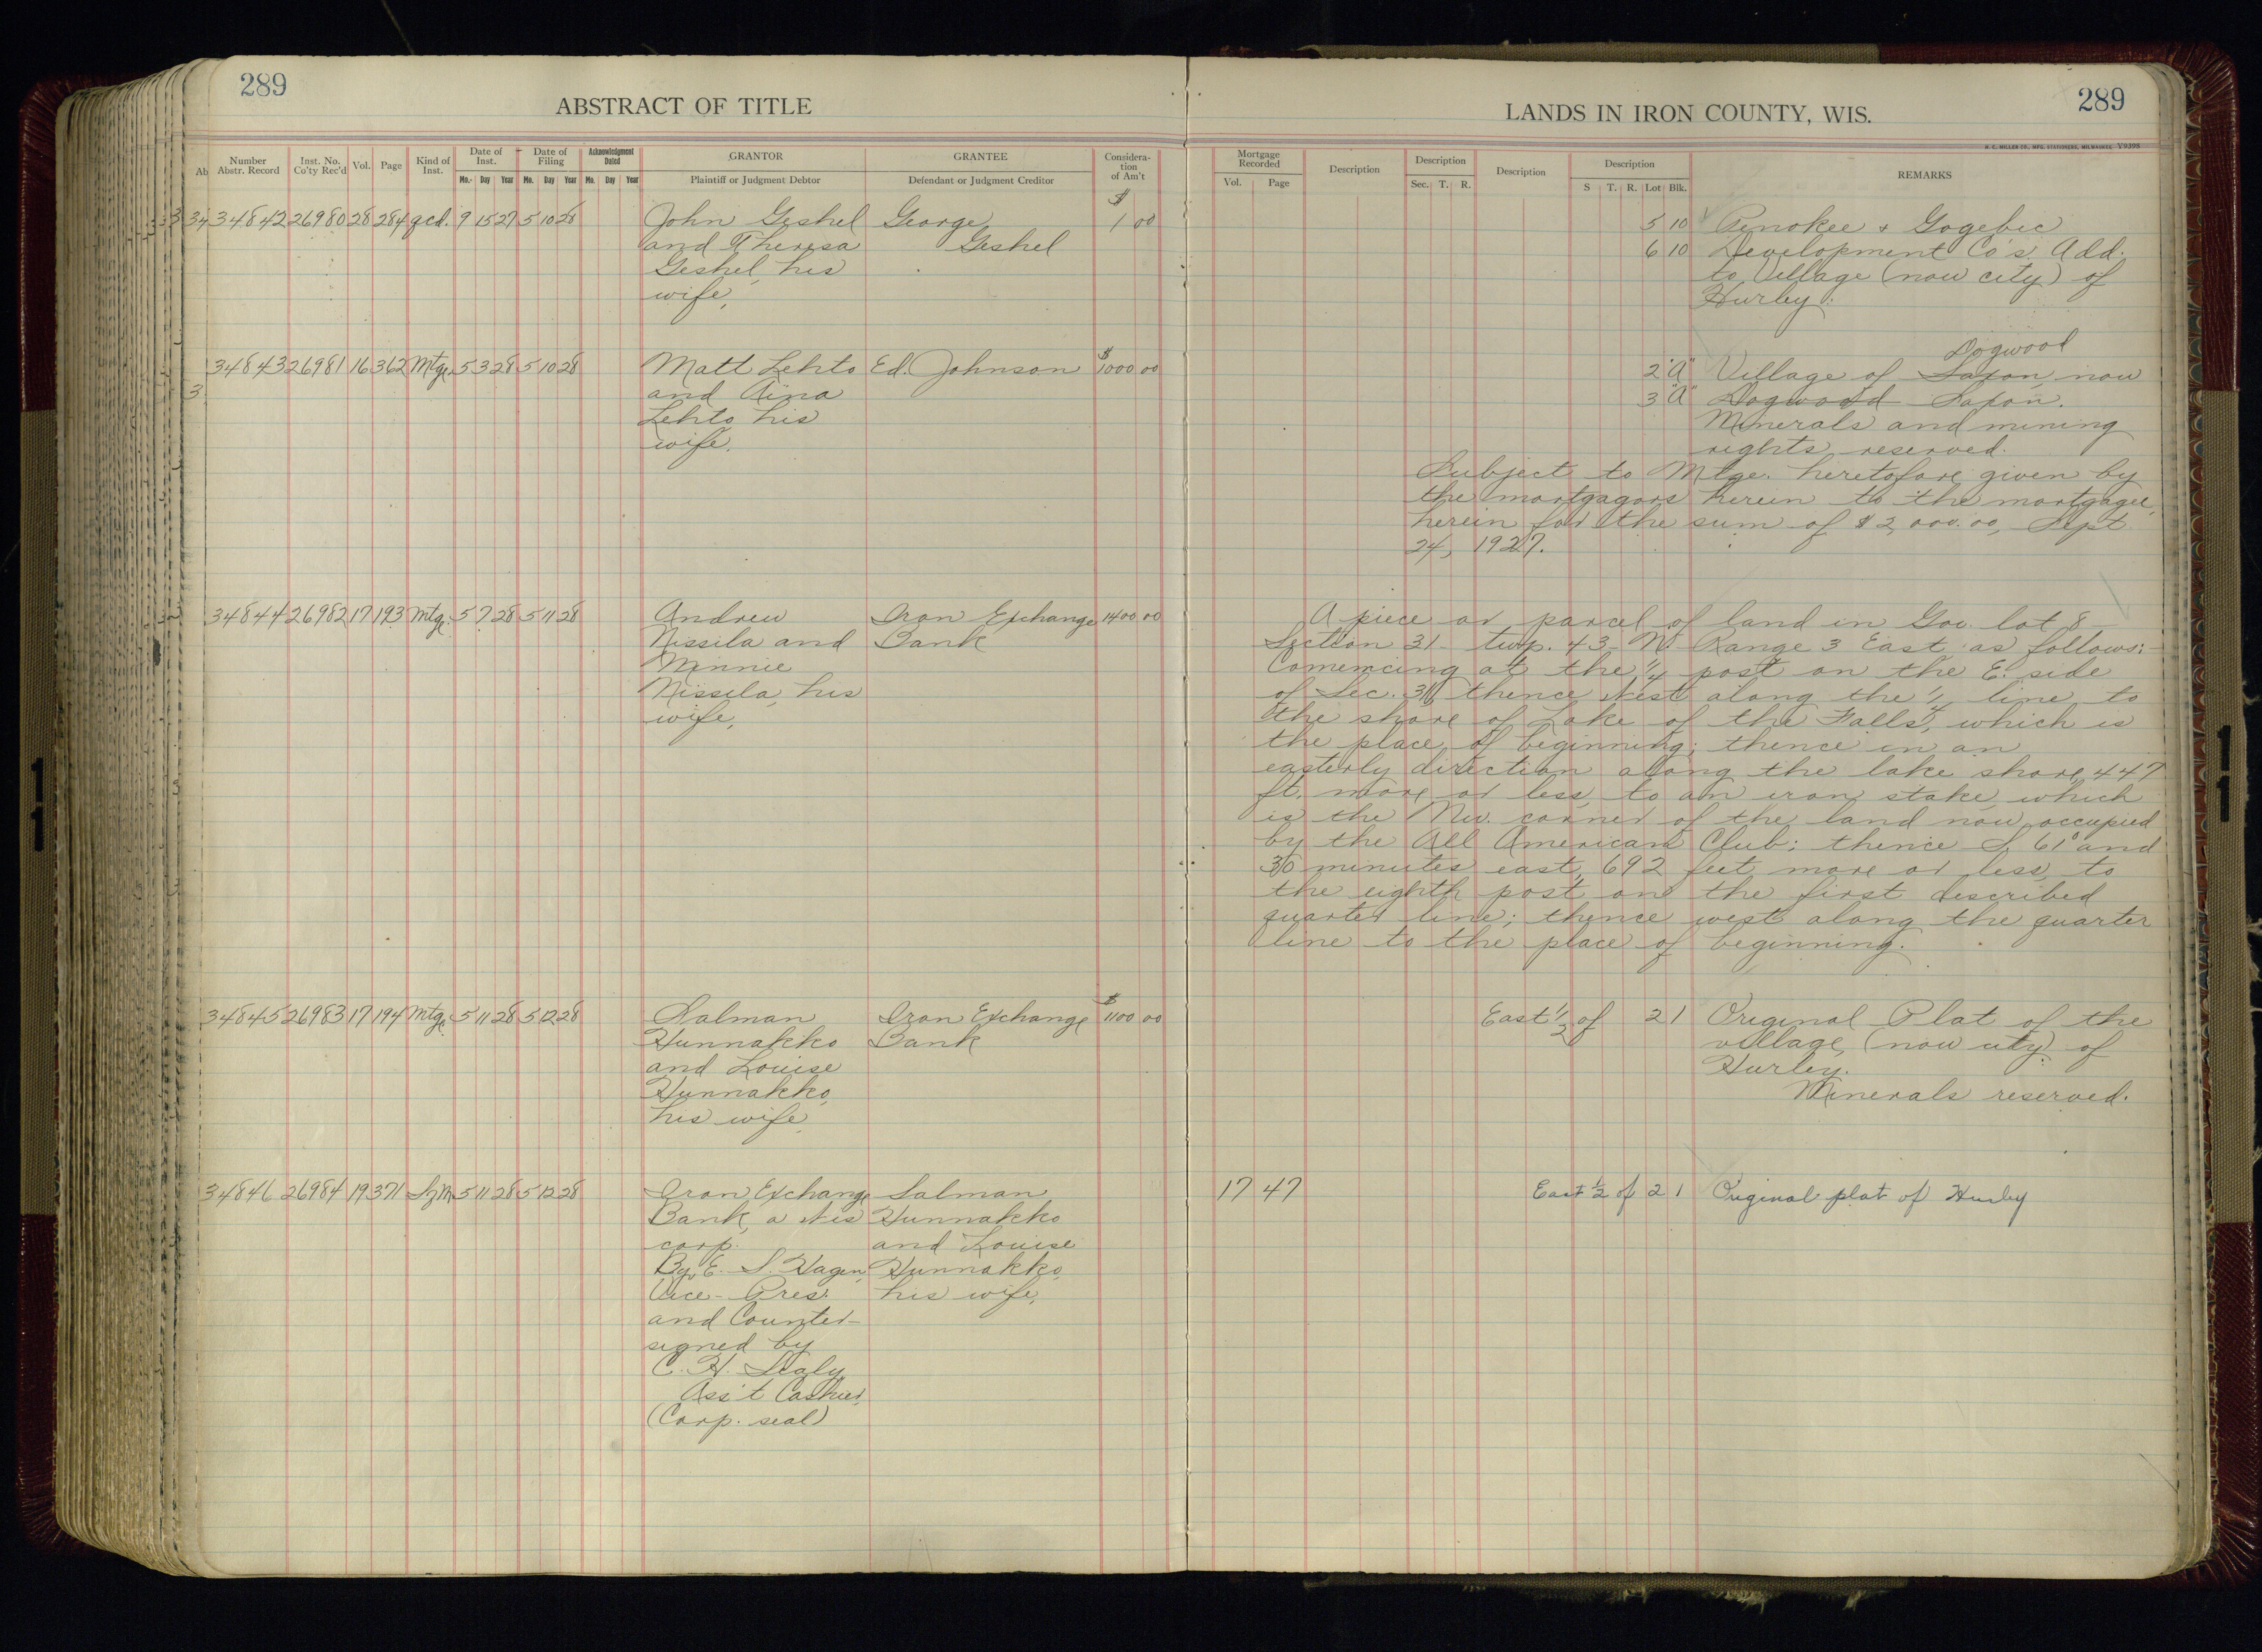 289
ABSTRACT OF TITLE
Ab
Number Abstr. Record
Inst. No. Co'ty Rec'd
Vol.
Page
Kind of Inst.
Date of Inst.
Date of Filing
Acknowledgment Dated
GRANTOR
GRANTEE
Considera-tion of Am't
Mo. Day Year Mo. Day Year Mo. Day Year
Plaintiff or Judgment Debtor
Defendant or Judgment Creditor
34842 26980 28 284 qcd. 9 15 27 5 10 28 John Geshel George $ 1 00
and Theresa Geshel
Geshel, his
wife,
34843 26981 16 362 Mtge. 5 3 28 5 10 28 Matt Lehto Ed. Johnson $ 1000 00
and Aina
Lehto, his
wife,
34844 26982 17 193 Mtge. 5 7 28 5 11 28 Andrew Iron Exchange 1400 00
Nissila and Bank
Minnie
Nissila, his
wife,
34845 26983 17 194 Mtge. 5 11 28 5 12 28 Salman Iron Exchange $ 1100 00
Hunnakko Bank
and Louise
Hunnakko,
his wife,
34846 26984 19 371 5 11 28 5 12 28 Iron Exchange Salman
Bank, a Wis Hunnakko
corp. and Louise
By E. S. Hagen, Hunnakko,
Vice-Pres. his wife,
and Counter-
signed by
C. H. Lealy
Ass't Cashier,
(Corp. seal)
LANDS IN IRON COUNTY, WIS.
289
H. C. MILLER CO., MFG. STATIONERS, MILWAUKEE V9398
Mortgage Recorded
Description
Description
Description
Description
REMARKS
Vol. Page Sec. T. R. S T. R. Lot Blk.
5 10 Penokee & Gogebic
6 10 Development Co's. Add.
to Village (now city) of
Hurley.
Dogwood
2 "A" Village of Saxon, now
3 "A" Dogwood Saxon.
Minerals and mining
rights reserved.
Subject to Mtge. heretofore given by
the mortgagors herein to the mortgagee,
herein for the sum of $2,000.00, Sept.
24, 1927.
A piece or parcel of land in Gov. lot 8-
Section 31- twp. 43 N. Range 3 East as follows:-
Comencing at the 1/4 post on the E. side
of Sec. 31, thence West along the 1/4 line to
the shore of Lake of the Falls, which is
the place of beginning; thence in an
easterly direction along the lake shore 447
ft. more or less, to an iron stake, which
is the Nw. corner of the land now occupied
by the All American Club; thence S. 61° and
30 minutes east, 692 feet more or less, to
the eighth post on the first described
quarter line; thence west along the quarter
line to the place of beginning.
East 1/2 of 2 1 Original Plat of the
village, (now city) of
Hurley.
Minerals reserved.
17 47 East 1/2 of 2 1 Original plat of Hurley